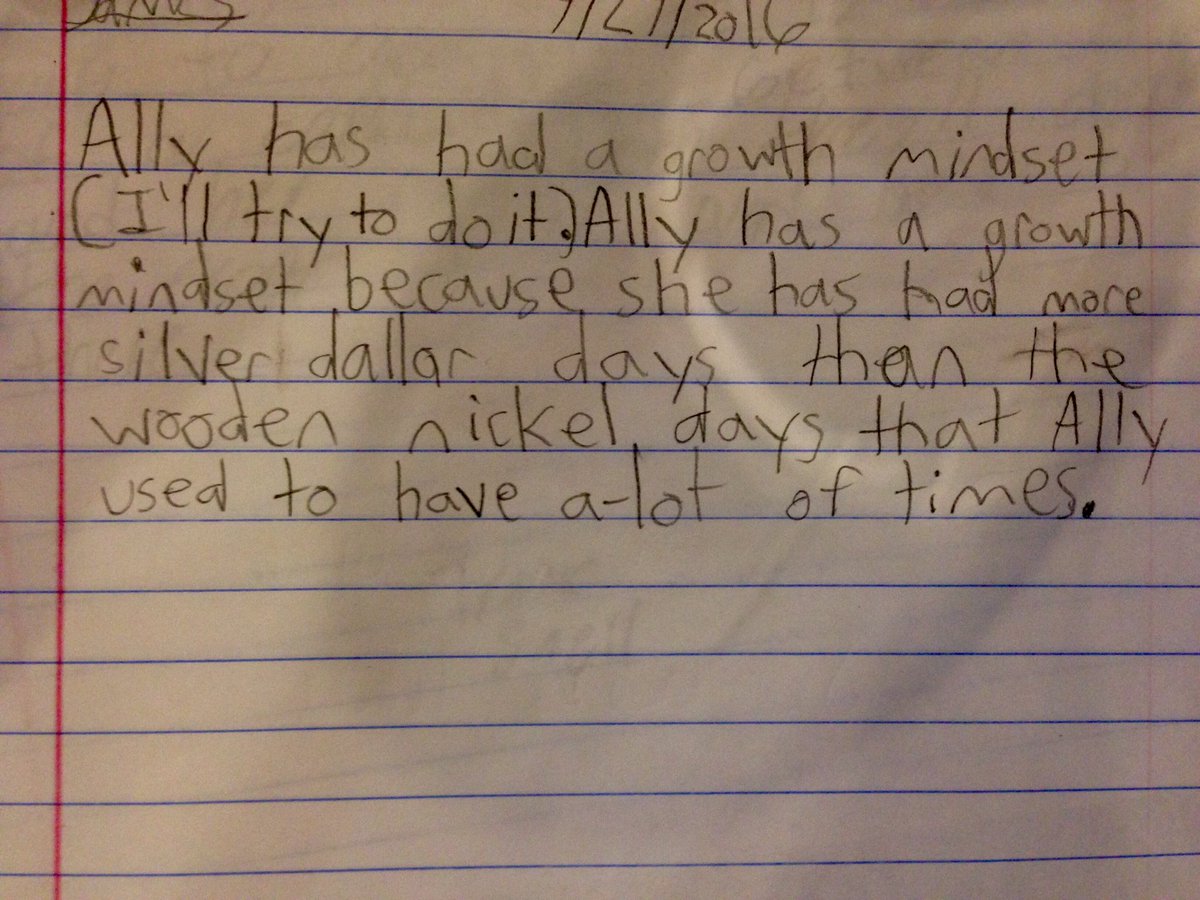 2016
Ally has had a growth mindset
(I'll try to do it.) Ally has a growth
mindset because she has had more
silver dallar days than the
wooden nickel days that Ally
used to have a-lot of times.